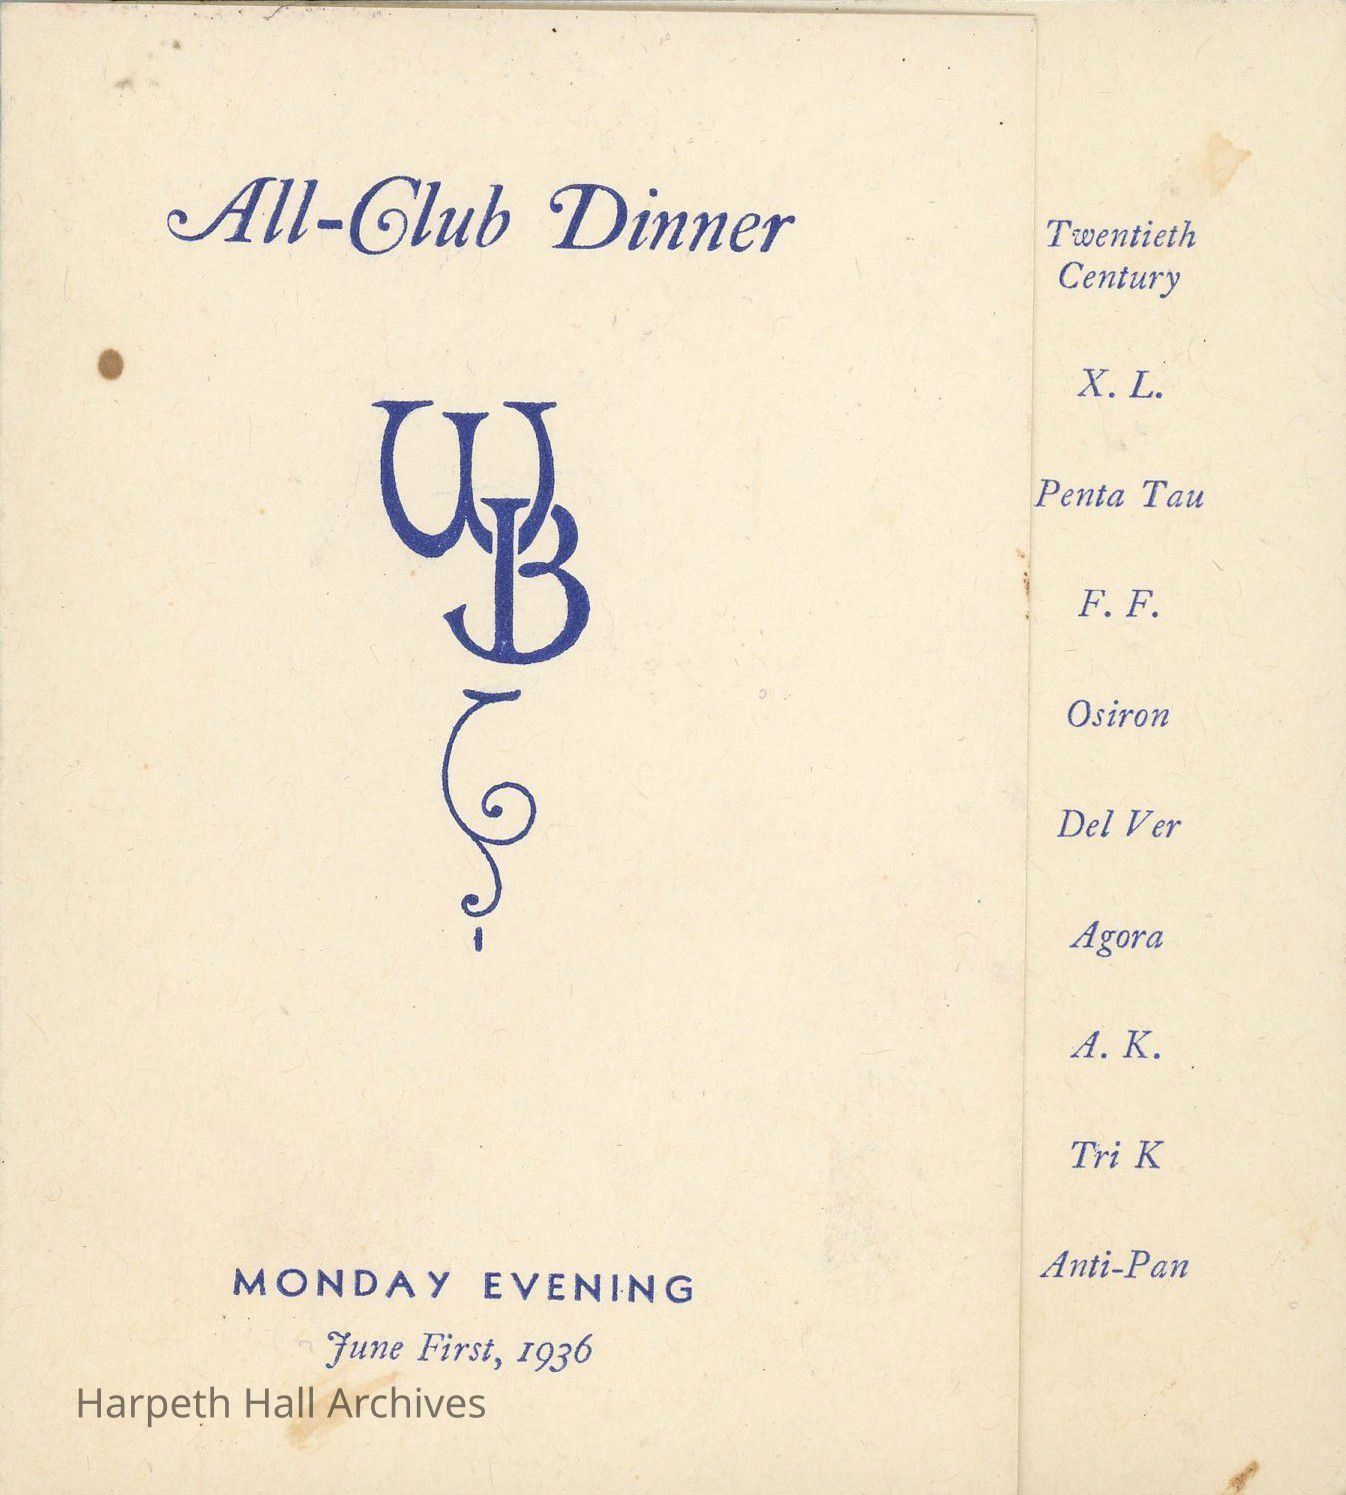 All-Club Dinner
WB
MONDAY EVENING
June First, 1936
Harpeth Hall Archives
Twentieth
Century
X. L.
Penta Tau
F. F.
Osiron
Del Ver
Agora
A. K.
Tri K
Anti-Pan